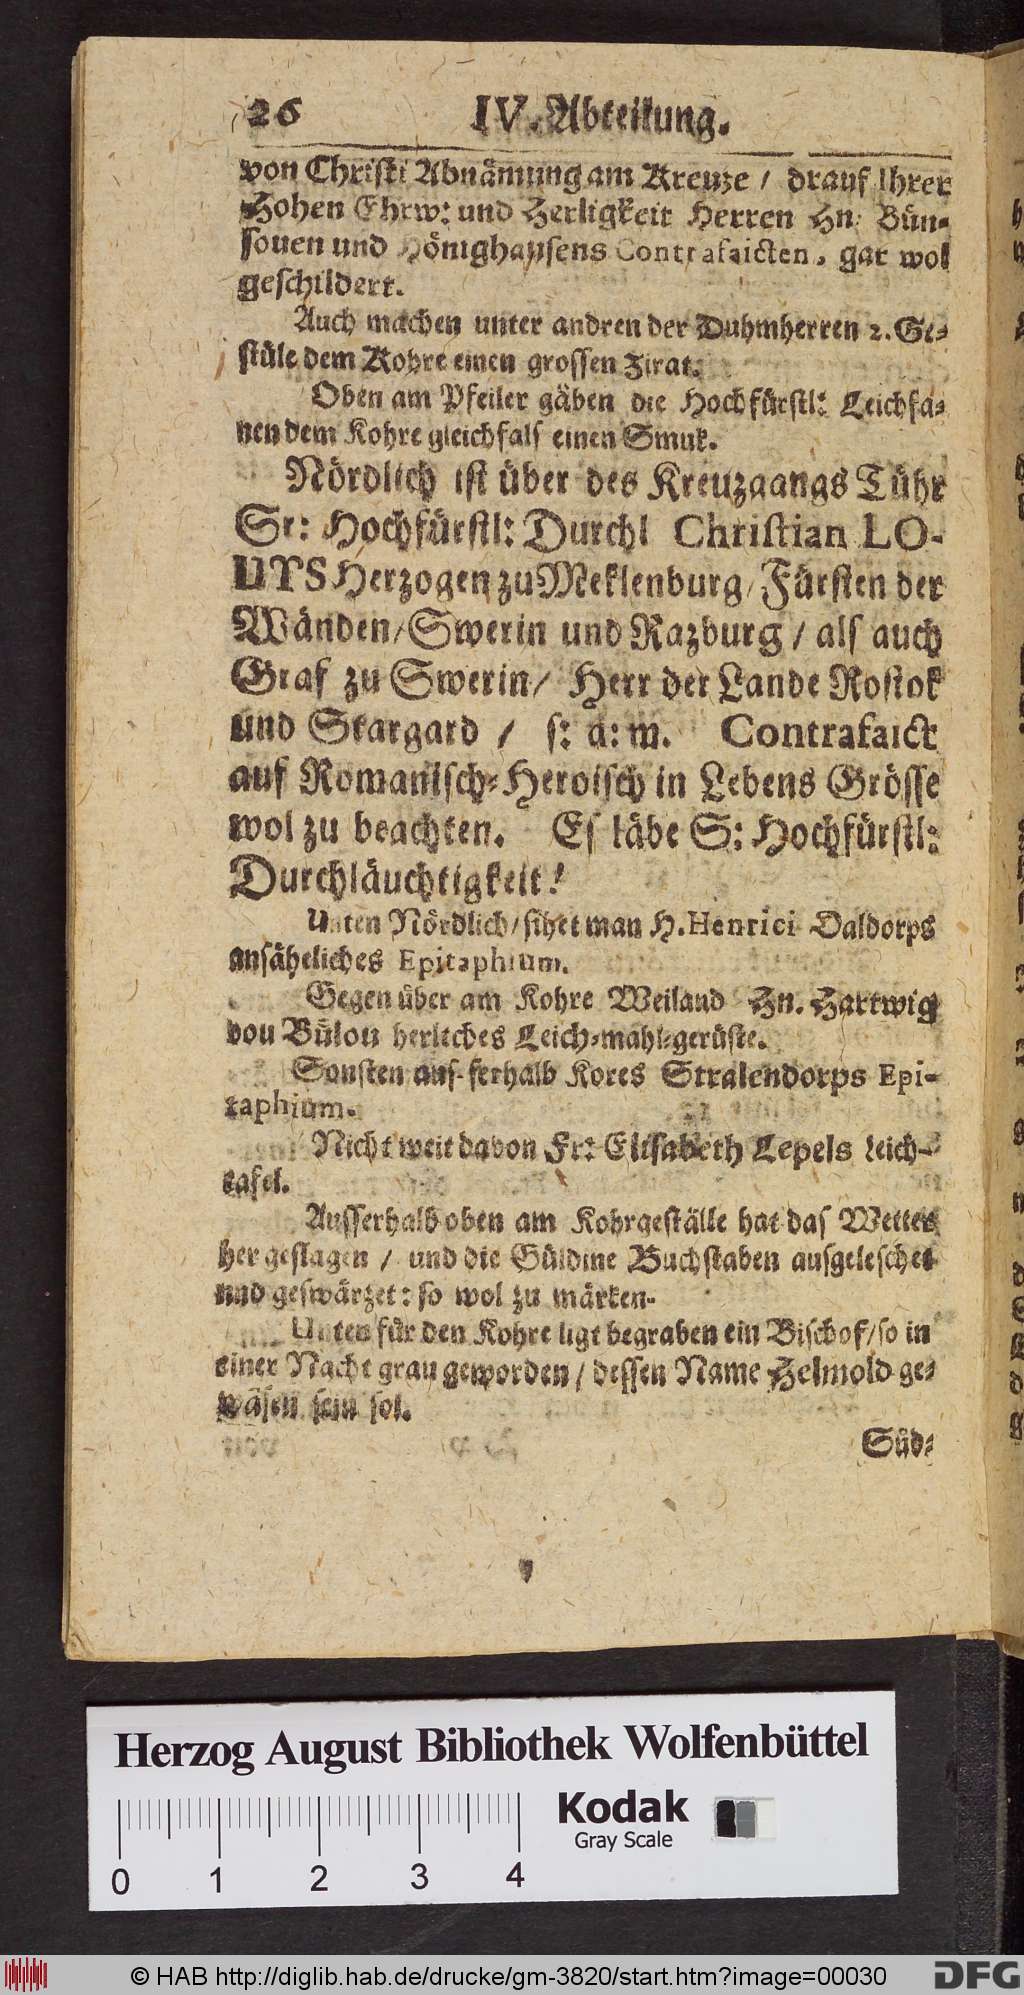 26 IV. Abteilung.
von Christi Abnämung am Kreuze / drauf Ihrer
Hohen Ehrw: und Herligkeit Herren Hn. Bün-
souen und Hönighausens Contrafaicten, gar wol
geschildert.
Auch machen unter andren der Duhmherren 2. Ge-
stüle dem Kohre einen grossen Zirat.
Oben am Pfeiler gäben die Hochfürstl: Leichfa-
nen dem Kohre gleichfals einen Smuk.
Nördlich ist über des Kreuzgangs Tühr
Sr: Hochfürstl: Durchl Christian LO-
UYS Herzogen zu Meklenburg / Fürsten der
Wänden / Swerin und Razburg / als auch
Graf zu Swerin / Herr der Lande Rostok
und Stargard / s: a: m. Contrafaict
auf Romanisch-Heroisch in Lebens Grösse
wol zu beachten. Es läbe S: Hochfürstl:
Durchläuchtigkeit!
Unten Nördlich / sihet man H. Henrici Daldorps
ansäheliches Epitaphium.
Gegen über am Kohre Weiland Hn. Hartwig
von Bülou herliches Leich-mahl-gerüste.
Sonsten aus-serhalb Kores Stralendorps Epi-
taphium.
Nicht weit davon Fr: Elisabeth Lepels Leich-
tafel.
Ausserhalb oben am Kohrgeställe hat das Wetter
her geslagen / und die Güldine Buchstaben ausgeleschet
und geswärzet: so wol zu märken.
Unten für den Kohre ligt begraben ein Bischof / so in
einer Nacht grau geworden / dessen Name Helmold ge-
wäsen sein sol.
Süd-
Herzog August Bibliothek Wolfenbüttel
Kodak
Gray Scale
0 1 2 3 4
© HAB http://diglib.hab.de/drucke/gm-3820/start.htm?image=00030 DFG